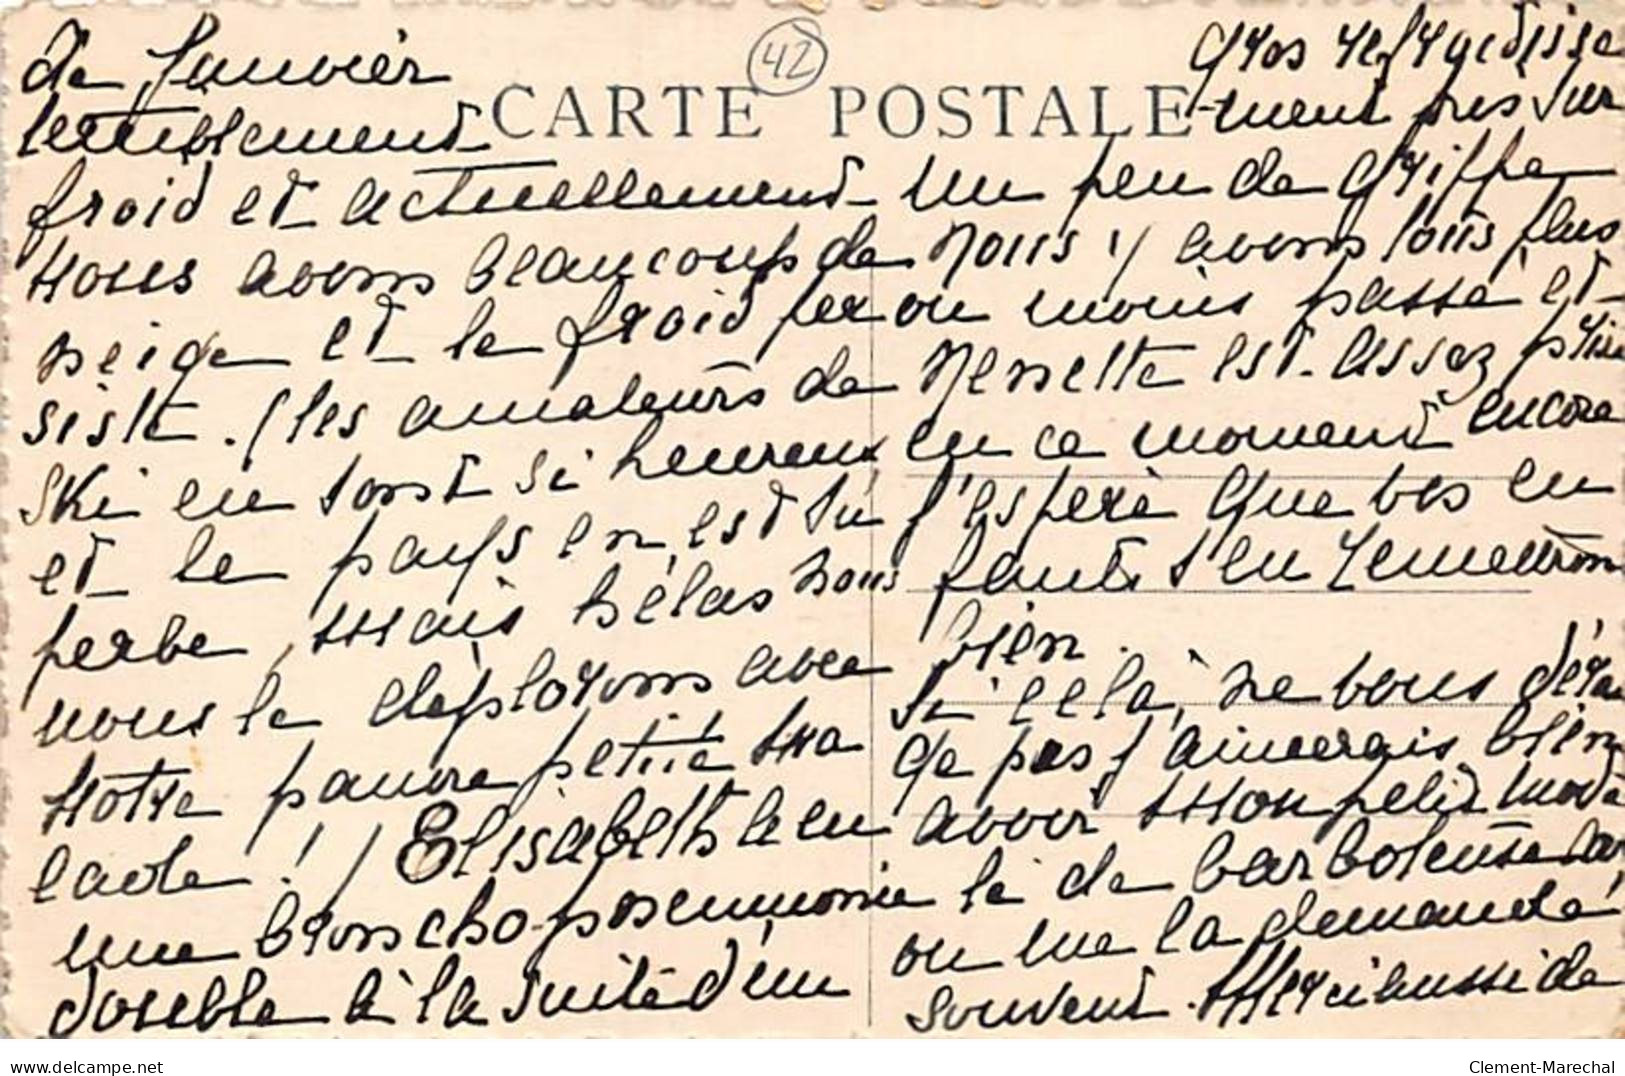 42
CARTE POSTALE
de Janvier
terriblement
froid et actuellement
nous avons beaucoup de
neige et le froid per
siste. (les amateurs de
ski en sont si heureux
et le pays en est su
perbe, mais hélas nous
nous le déplorons avec
notre pauvre petite ma
lade ! / Elisabeth a eu
une broncho-pneumonie
double à la suite d'un
gros refroidisse
-ment pris sur
un peu de grippe
Nous y avons tous plus
ou moins passé et
Nenette est assez prise
en ce moment encore
j'espère que vos en
fants s'en remettron
bien.
Si cela, ne vous déran
ge pas j'aimerais bien
avoir mon petit modè
le de barboteuse car
on me la demandé
souvent. Merci aussi de
www.delcampe.net
Clement-Marechal